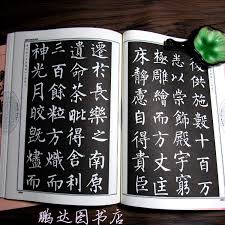 復供施數十百万
悉以崇飾殿宇窮
極雕繪而方丈匡
床靜慮自得貴臣
遷於長樂之南原
遺命茶毗得舍利
三百餘粒方熾而
神光月皎既燼而
鹏达图书店